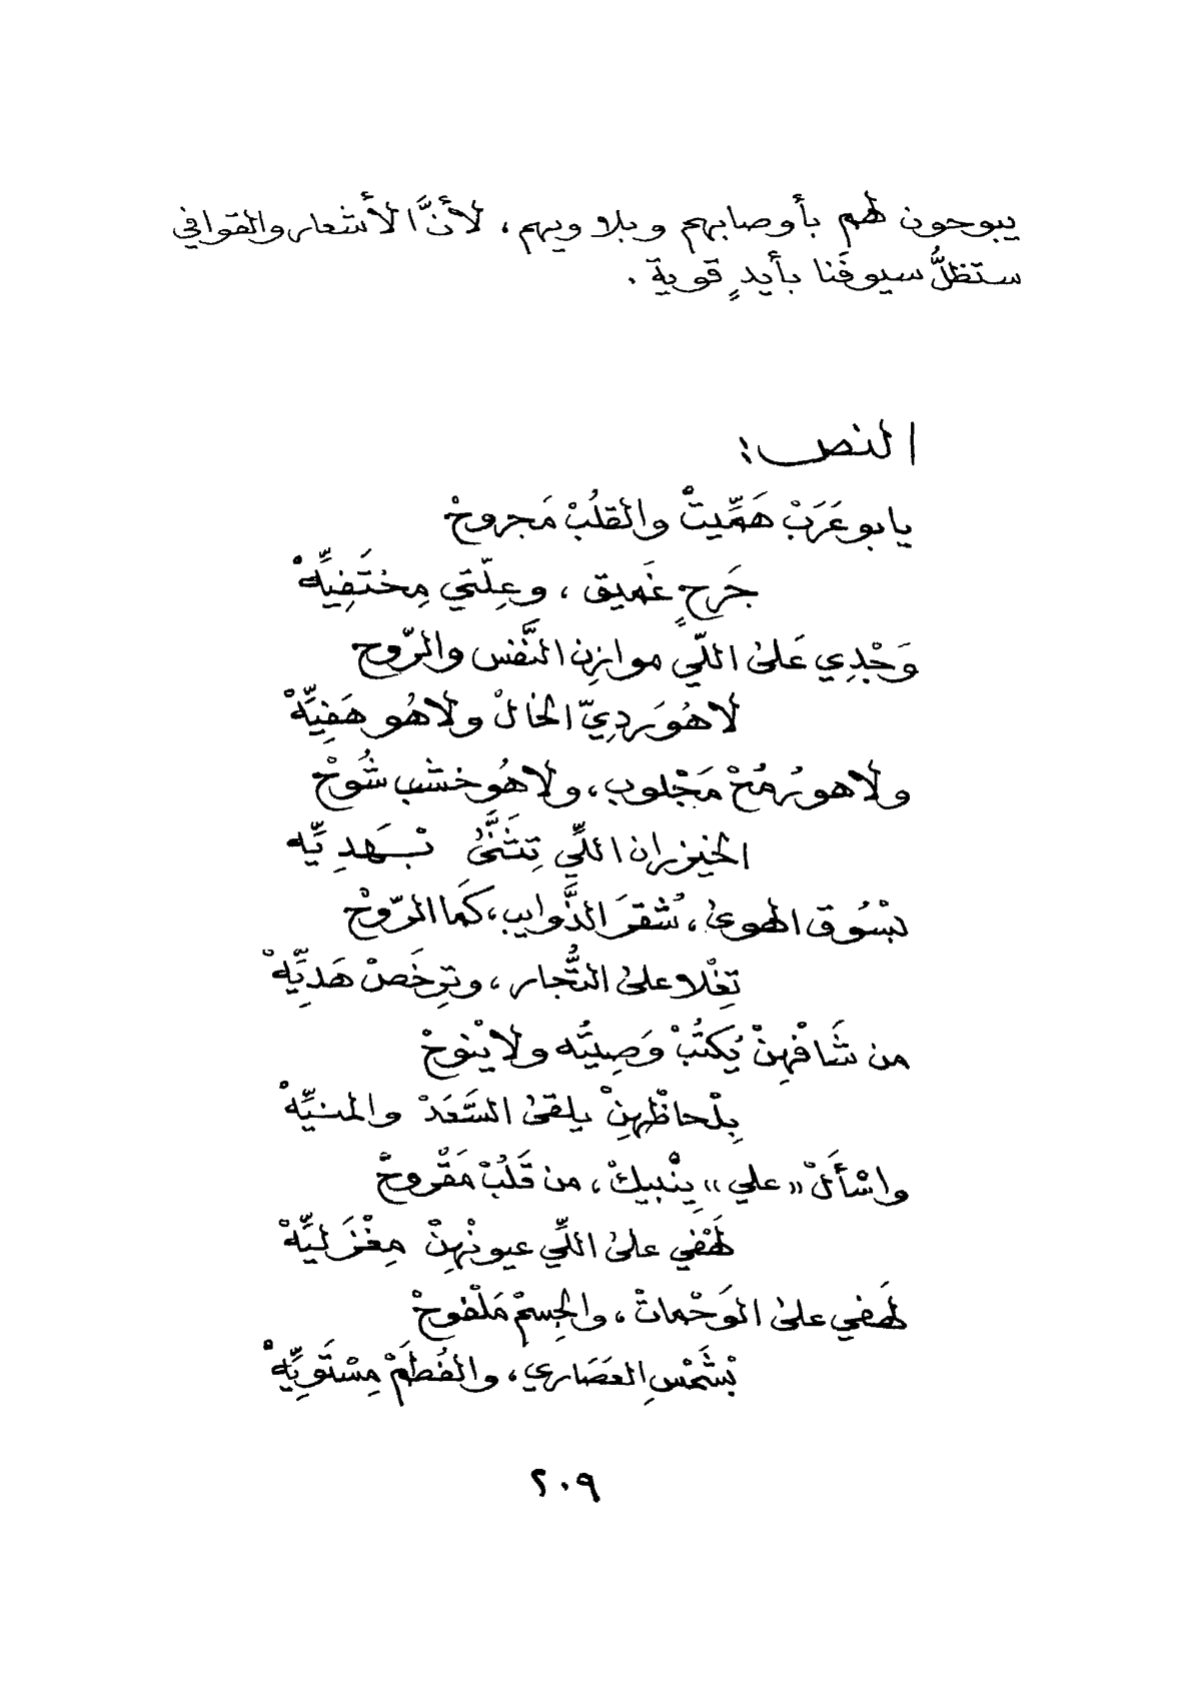 يبوحون لهم بأوصابهم وبلاويهم، لأنَّ الأشعار والقوافي
ستظلُّ سيوفَنا بأيدٍ قوية.
النص:
يابو عَرَبْ هَمِّيتْ والقلُبْ مَجروحْ
جَرحٍ غَميق، وعِلّتي مِختَفِيِّهْ
وَجْدِي عَلىٰ اللّي موازِن النَّفس والرّوح
لا هُوَ رديّ الخالْ ولا هُو هَفِيِّهْ
ولا هو رُمُحْ مَجْلوب، ولا هُو خشب شُوحْ
الخيزران اللِّي تِتثَنَّىٰ بْهَدِيِّه
بْسُوق الهوىٰ، شُقرَ الذَّوايب، كَما الرّوحْ
تِغْلا علىٰ التُّجار، وتِرخَصْ هَدِيِّهْ
من شَافْهِنْ يُكتُبْ وَصِيتُّه ولا يْنوحْ
بِلْحاظْهِنْ يلقىٰ السَّعَدْ والمنيِّهْ
واسْأَلْ «علي» يِنْبيكْ، من قَلُبْ مَقْروحْ
لَهْفي علىٰ اللِّي عيونْهِنْ مِغْزَليِّهْ
لهَفي علىٰ الوَحْماتْ، والجِسمْ مَلْفوحْ
بْشَمْسِ العَصَاري، والفُطَمْ مِسْتَوِيِّهْ
٢٠٩